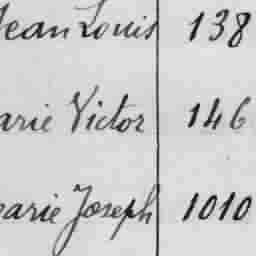 Jean Louis 138
arie Victor 146
arie Joseph 1010